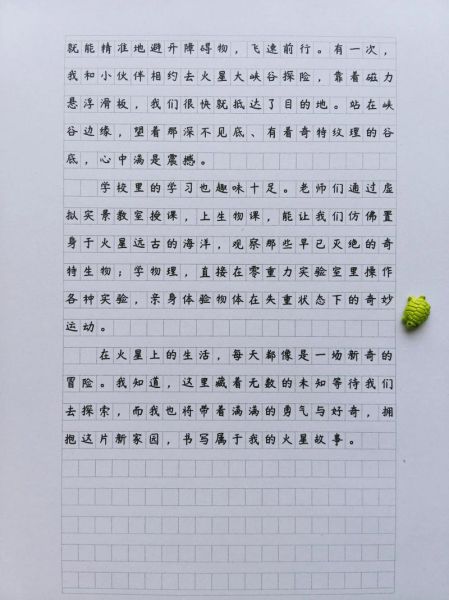 就能精准地避开障碍物，飞速前行。有一次，
我和小伙伴相约去火星大峡谷探险，靠着磁力
悬浮滑板，我们很快就抵达了目的地。站在峡
谷边缘，望着那深不见底、有着奇特纹理的谷
底，心中满是震撼。
学校里的学习也趣味十足。老师们通过虚
拟实景教室授课，上生物课，能让我们仿佛置
身于火星远古的海洋，观察那些早已灭绝的奇
特生物；学物理，直接在零重力实验室里操作
各种实验，亲身体验物体在失重状态下的奇妙
运动。
在火星上的生活，每天都像是一场新奇的
冒险。我知道，这里藏着无数的未知等待我们
去探索，而我也将带着满满的勇气与好奇，拥
抱这片新家园，书写属于我的火星故事。